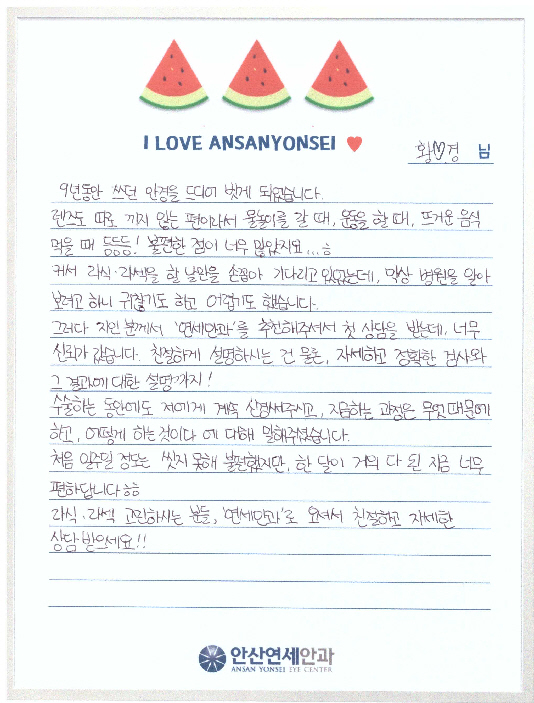 I LOVE ANSANYONSEI
황♡경 님
9년동안 쓰던 안경을 드디어 벗게 되었습니다.
렌즈도 따로 끼지 않는 편이라서 물놀이를 갈 때, 운동을 할 때, 뜨거운 음식
먹을 때 등등등! 불편한 점이 너무 많았지요...ㅎ
커서 라식·라섹을 할 날만을 손꼽아 기다리고 있었는데, 막상 병원을 알아
보려고 하니 귀찮기도 하고 어렵기도 했습니다.
그러다 지인 분께서 '연세안과'를 추천해주셔서 첫 상담을 받는데, 너무
신뢰가 갔습니다. 친절하게 설명하시는 건 물론, 자세하고 정확한 검사와
그 결과에 대한 설명까지!
수술하는 동안에도 저에게 계속 신경써주시고, 지금하는 과정은 무엇 때문에
하고, 어떻게 하는것이다 에 대해 말해주셨습니다.
처음 일주일 정도는 씻지 못해 불편했지만, 한 달이 거의 다 된 지금 너무
편하답니다ㅎㅎ
라식·라섹 고민하시는 분들, '연세안과'로 오셔서 친절하고 자세한
상담받으세요!!
안산연세안과
ANSAN YONSEI EYE CENTER